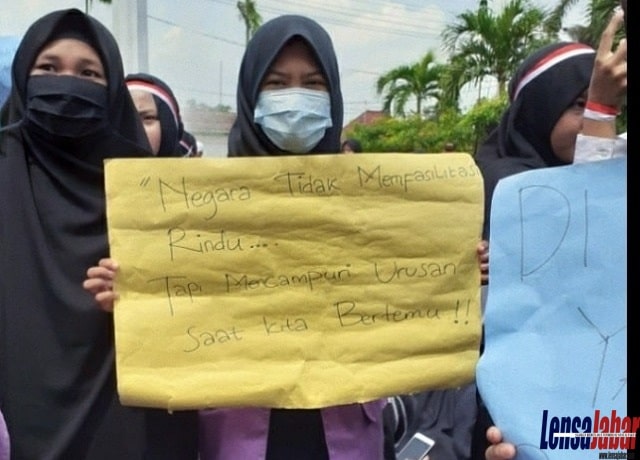 "Negara Tidak Memfasilitasi
Rindu....
Tapi Mencampuri Urusan
Saat kita Bertemu !!
DI
Y
LensaJabar
www.lensajabar